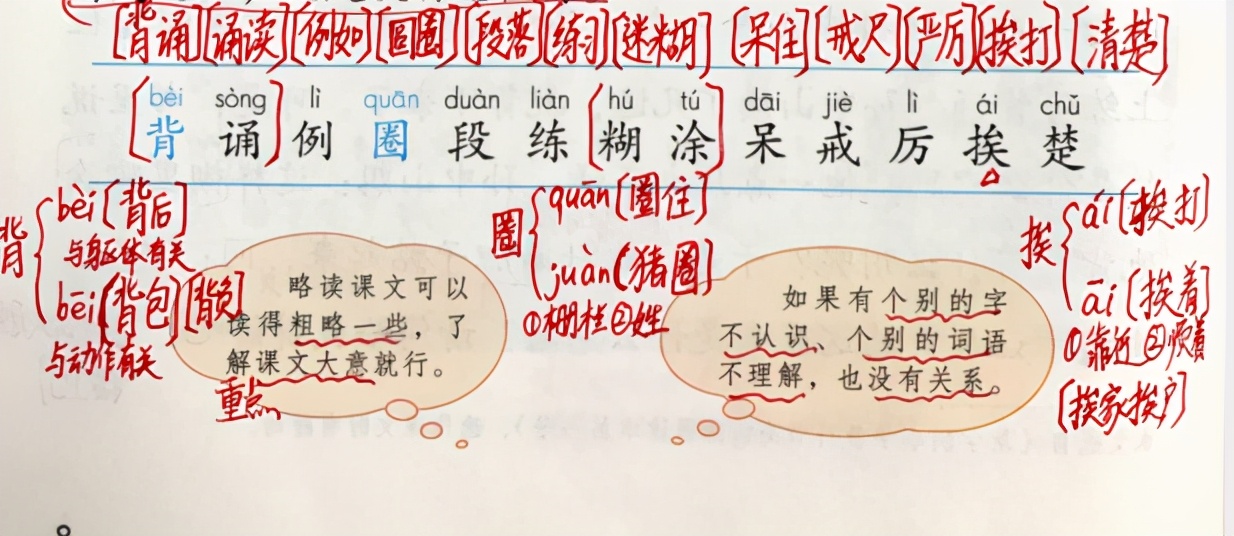 [背诵][诵读][例如][圆圈][段落][练习][迷糊] [呆住][戒尺][严厉][挨打][清楚]
bèi sòng lì quān duàn liàn hú tú dāi jiè lì ái chǔ
[背 诵] 例 圈 段 练 [糊 涂] 呆 戒 厉 挨 楚
背
bèi[背后]
与躯体有关
bēi[背包][背负]
与动作有关
圈
quān[圈住]
juàn[猪圈]
①栅栏②姓
挨
ái[挨打]
āi[挨着]
①靠近②顺着
[挨家挨户]
略读课文可以
读得粗略一些，了
解课文大意就行。
重点
如果有个别的字
不认识、个别的词语
不理解，也没有关系。